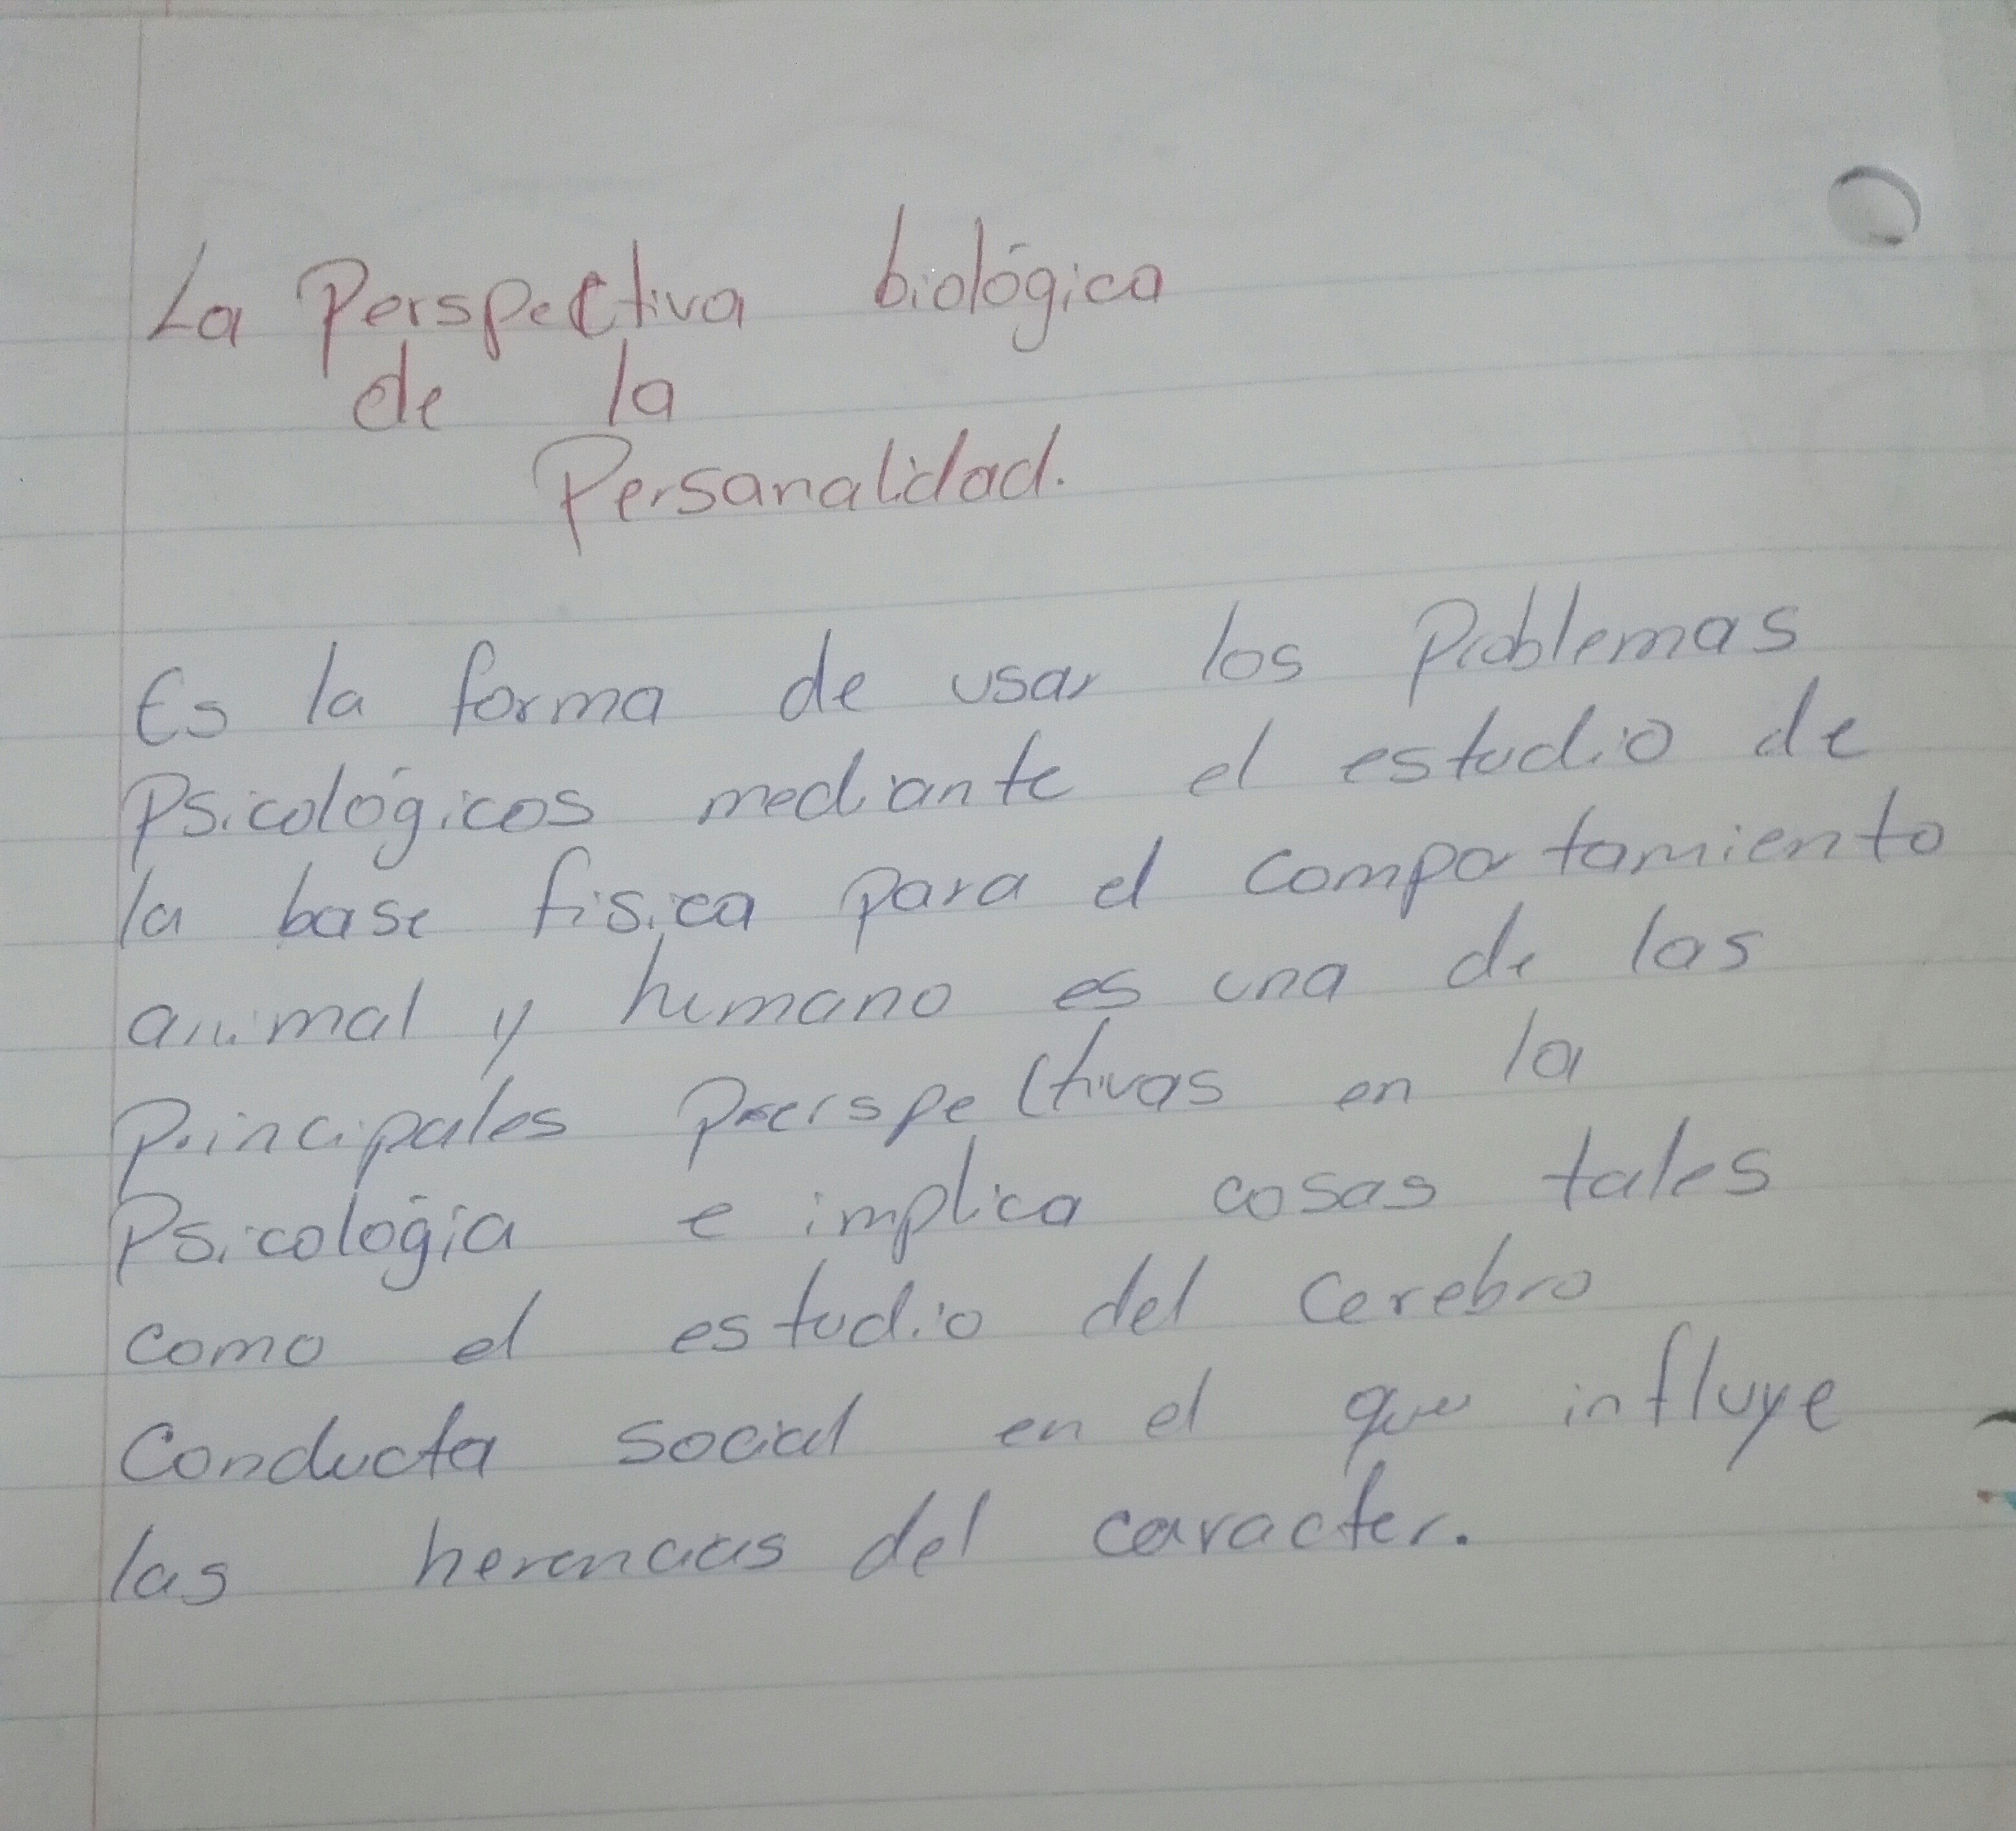 La Perspectiva biológica
de la
Persanalidad.
Es la forma de usar los Problemas
Psicológicos mediante el estudio de
la base fisica para el comportamiento
animal y humano es una de las
Principales Preerspectivas en la
Psicología e implica cosas tales
como el estudio del Cerebro
Conducta social en el que influye
las herencias del caracter.